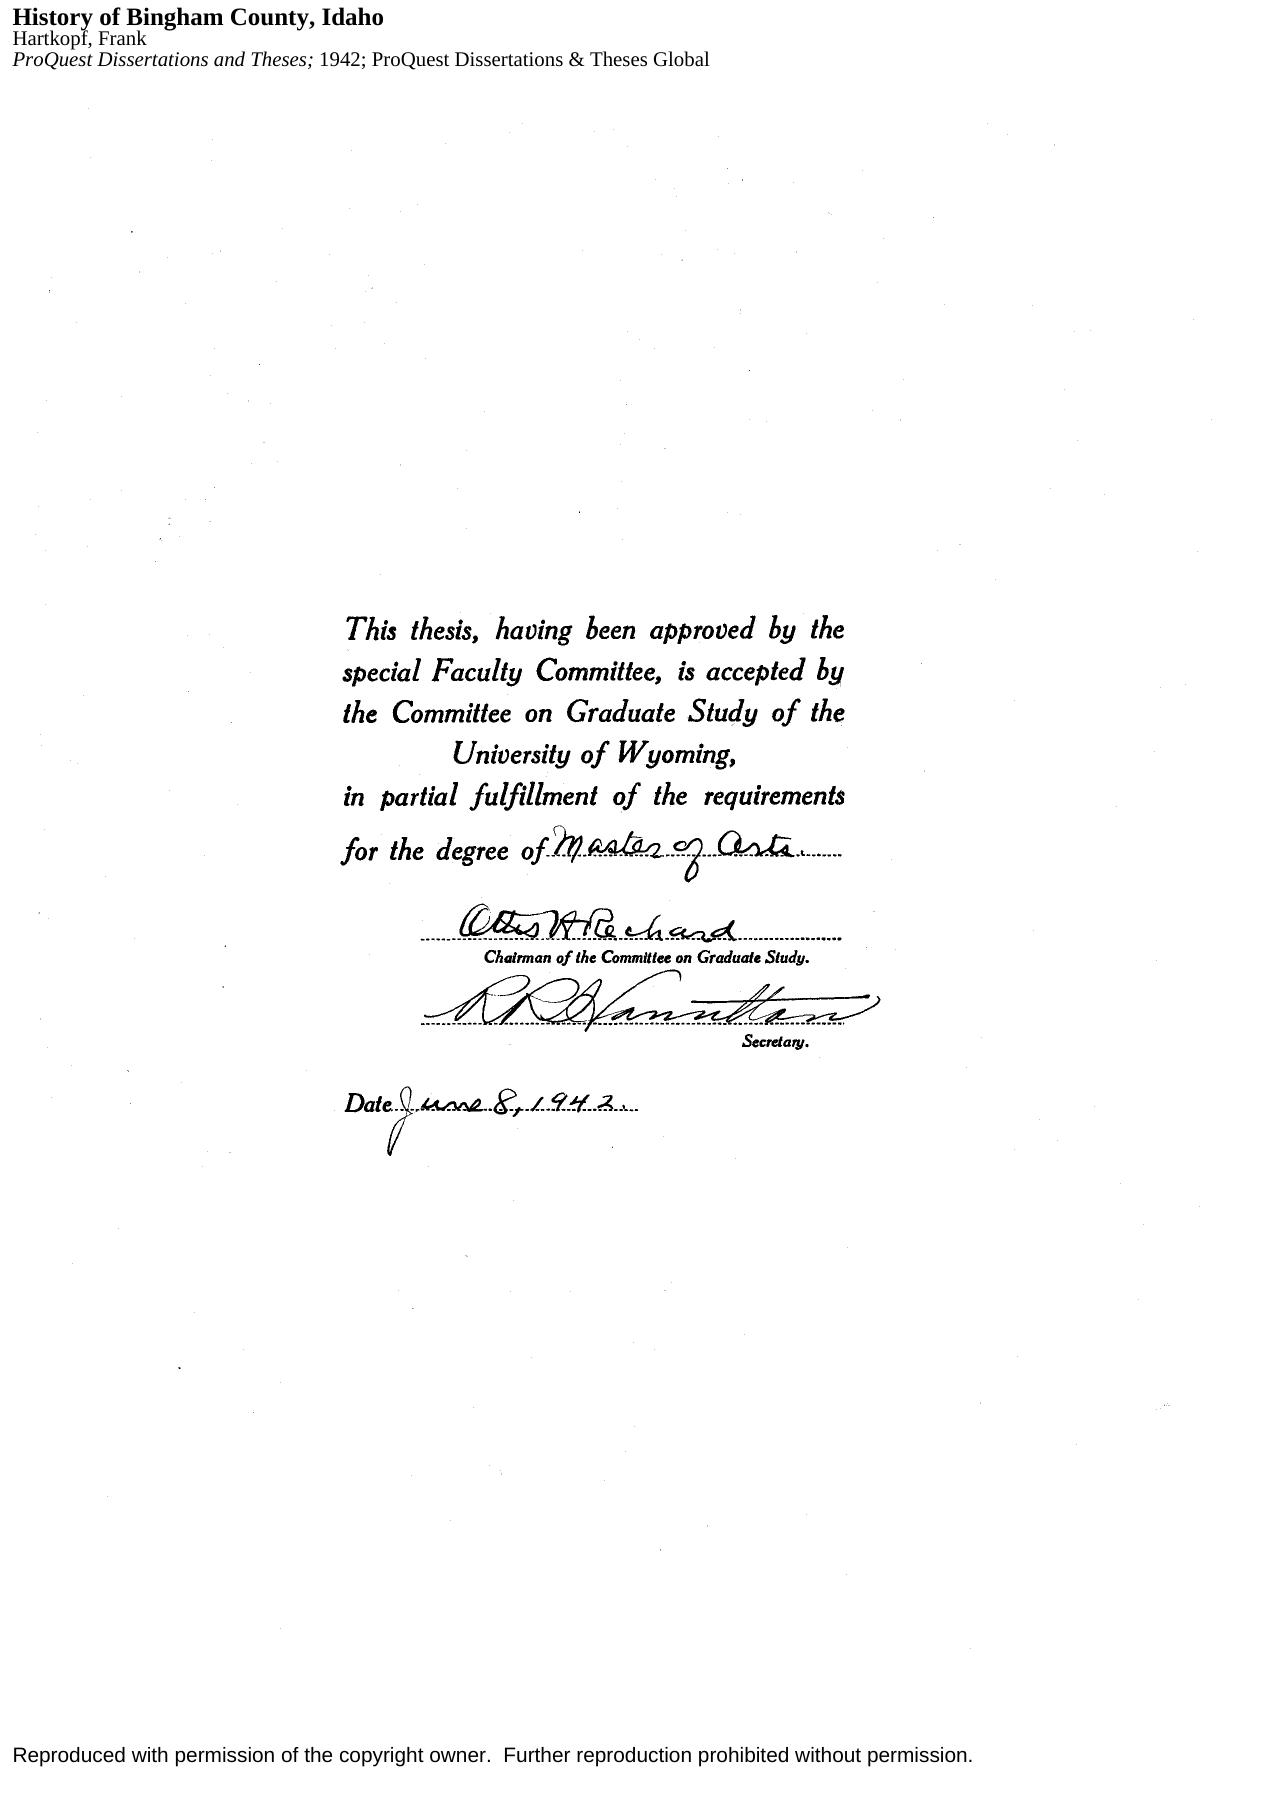 History of Bingham County, Idaho
Hartkopf, Frank
ProQuest Dissertations and Theses; 1942; ProQuest Dissertations & Theses Global
This thesis, having been approved by the
special Faculty Committee, is accepted by
the Committee on Graduate Study of the
University of Wyoming,
in partial fulfillment of the requirements
for the degree of Master of Arts.
Ottis H Rechard
Chairman of the Committee on Graduate Study.
R R Hamilton
Secretary.
Date June 8, 1942.
Reproduced with permission of the copyright owner. Further reproduction prohibited without permission.